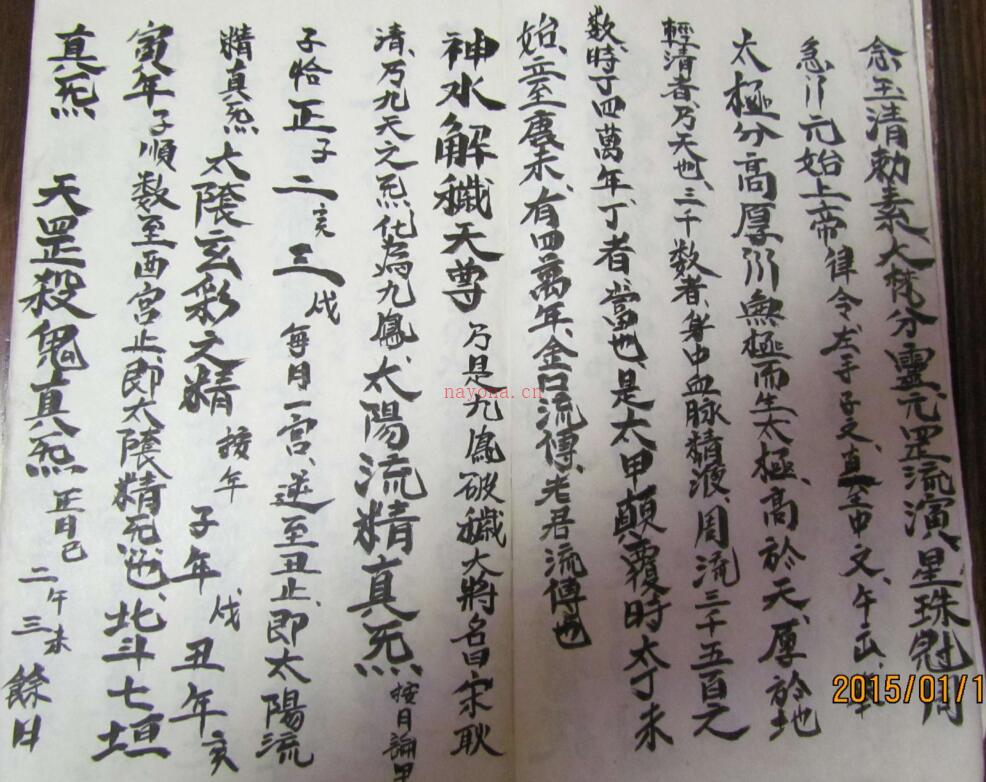 念玉清勅素大梵分靈元罡流演星珠冠周
急行元始上帝律令左手子文真至中文午
太極分高厚行無極而生太極高於天厚於地
輕清者乃天也三千數者身中血脉精液周流三千五百之
數時丁四萬年丁者當也是太甲顛覆時太丁未
始立至康未有四萬年金口流傳老君流傳也
神水解穢天尊 乃是九鳳破穢大將名曰宋耿
清乃九天之炁化為九鳳太陽流精真炁 按月論
子恰正子二亥三戌每月一宮逆至丑止即太陽流
精真炁 太陰玄彩之精 按年 子年戌 丑年亥
寅年子順数至酉宮止即太陰精炁也北斗七垣
真炁 天罡殺鬼真炁 正日巳二午三未 餘日
nayona.cn
2015/01/1